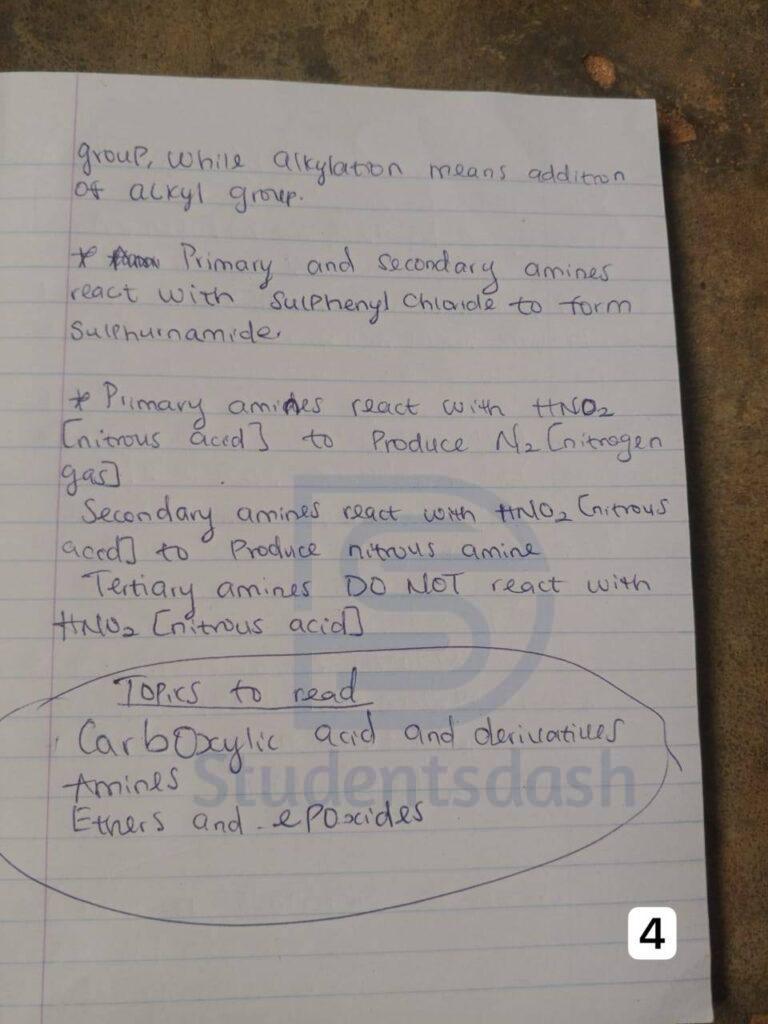 group, while alkylation means addition
of alkyl group.
* Primary and secondary amines
react with sulphenyl chloride to form
Sulphurnamide.
* Primary amines react with HNO2
[nitrous acid] to produce N2 [nitrogen
gas]
Secondary amines react with HNO2 [nitrous
acid] to produce nitrous amine
Tertiary amines DO NOT react with
HNO2 [nitrous acid]
Topics to read
Carboxylic acid and derivatives
Amines
Ethers and epoxides
Studentsdash
4